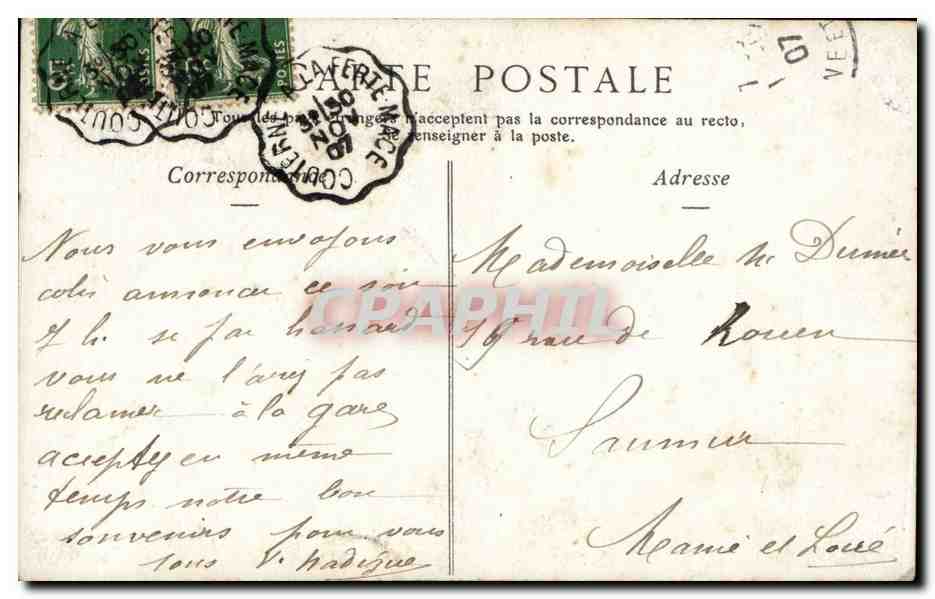 CARTE POSTALE
Tous les pays étrangers n'acceptent pas la correspondance au recto,
se renseigner à la poste.
COUTERNE A LA FERTE-MACE
30
NOV
07
Correspondance
Adresse
Nous vous envoyons
colis annoncer ce soir
7 h. si par hassard
vous ne l'avez pas
reclamer à la gare
acceptez en même
temps notre bon
souvenirs pour vous
tous V.
Mademoiselle M. Dernier
19 rue de Rouen
Saumur
Maine et Loire
CPAPHIL